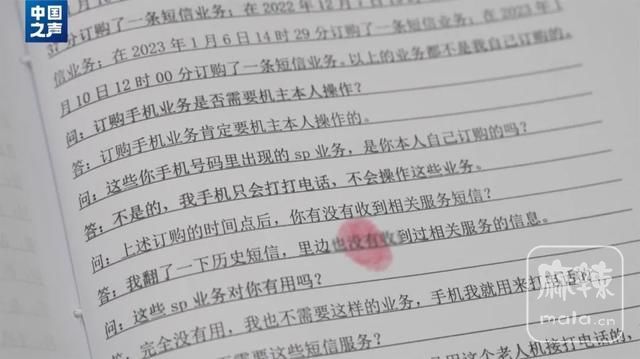 中国之声
37分订购了一条短信业务；在2022年12月7日
信业务；在2023年1月6日14时29分订购了一条短信业务；在2023年1
月10日12时00分订购了一条短信业务。以上的业务都不是我自己订购的。
问：订购手机业务是否需要机主本人操作？
答：订购手机业务肯定要机主本人操作的。
问：这些你手机号码里出现的sp业务，是你本人自己订购的吗？
答：不是的，我手机只会打打电话，不会操作这些业务。
问：上述订购的时间点后，你有没有收到相关服务短信？
答：我翻了一下历史短信，里边也没有收到过相关服务的信息。
问：这些sp业务对你有用吗？
答：完全没有用，我也不需要这样的业务，手机我就用来打电话
些短信服务？
用这个老人机接打电话的，
麻辣
mala.cn